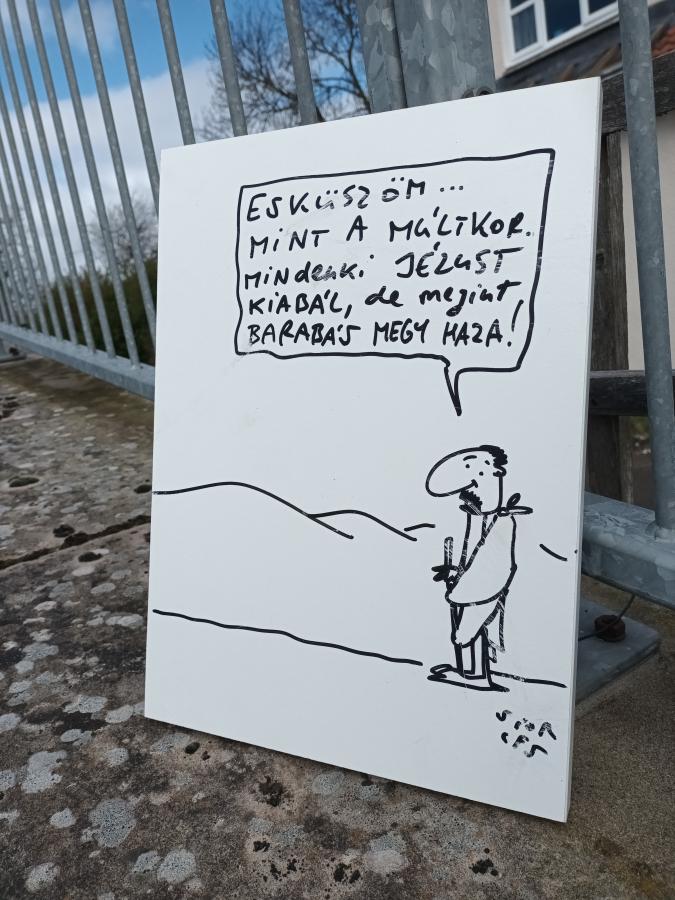 ESKÜSZÖM...
MINT A MÚLTKOR.
MINDENKI JÉZUST
KIABÁL, de megint
BARABÁS MEGY HAZA!